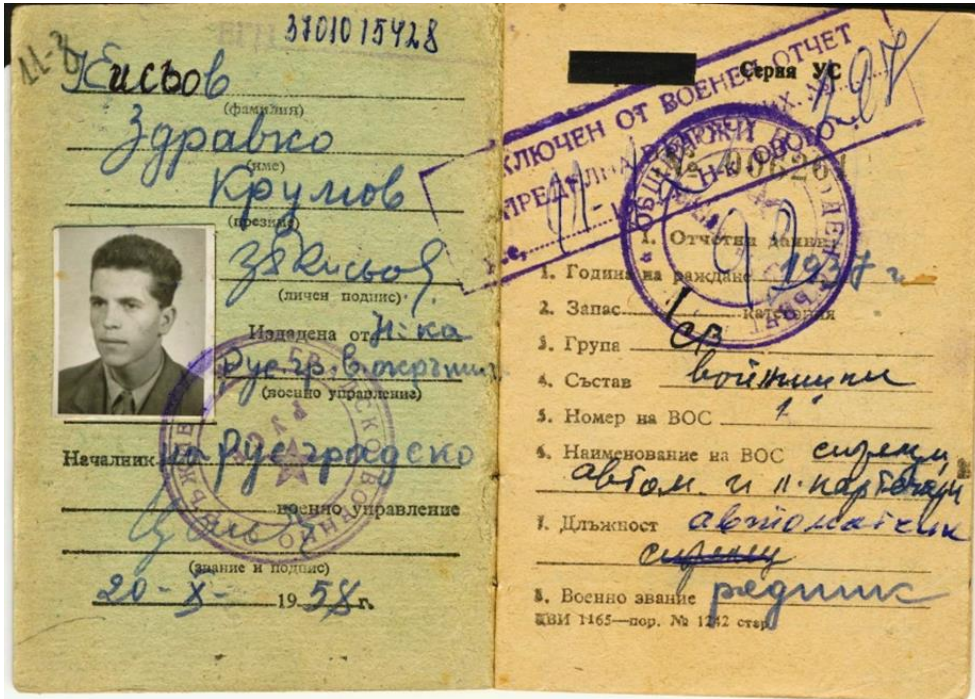 3701015428
11-8
Кисьов
(фамилия)
Здравко
(име)
Крумов
(презиме)
ЗКисьов
(личен подпис)
Издадена от Н-ка
Рус. гр. в. окръжн.
(военно управление)
Началник на Русе градско
военно управление
(звание и подпис)
20-X- 1958 г.
Серия УС
№ 006261
ИЗКЛЮЧЕН ОТ ВОЕНЕН ОТЧЕТ
I. Отчетни данни
1. Година на раждане 1937 г
2. Запас I категория
3. Група СВ
4. Състав войнишки
5. Номер на ВОС 1
6. Наименование на ВОС стрелци
автом. и п. картечари
7. Длъжност автоматчик
стрелец
8. Военно звание редник
ДВИ 1165—пор. № 1242 стар